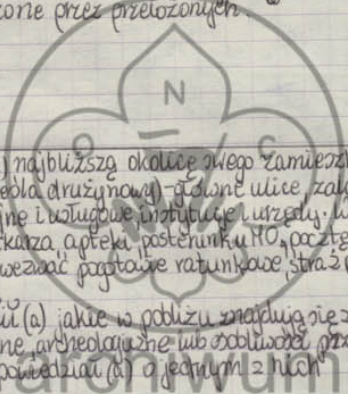 zone przez przełożonych.
N
O C
) najbliższą okolicę swego zamieszk
drużynowy)-główne ulice, zak
ne i usługowe, instytucje i urzędy. W
karza, apteki, posterunku MO, pocztę
wezwać pogotowie ratunkowe, straż
ił (a) jakie w pobliżu znajdują się z
ne, archeologiczne lub osobliwości prz
powiedział (a) o jednym z nich
archiwum